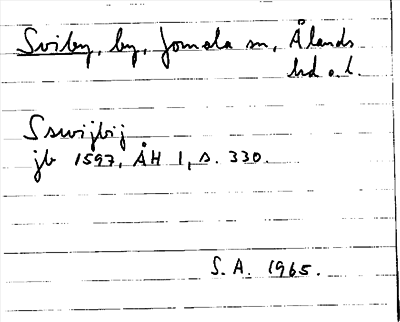 Sviby, by, Jomala sn, Ålands
hd o. l.
Sswijbij
jb 1597, ÅH 1, s. 330.
S. A. 1965.